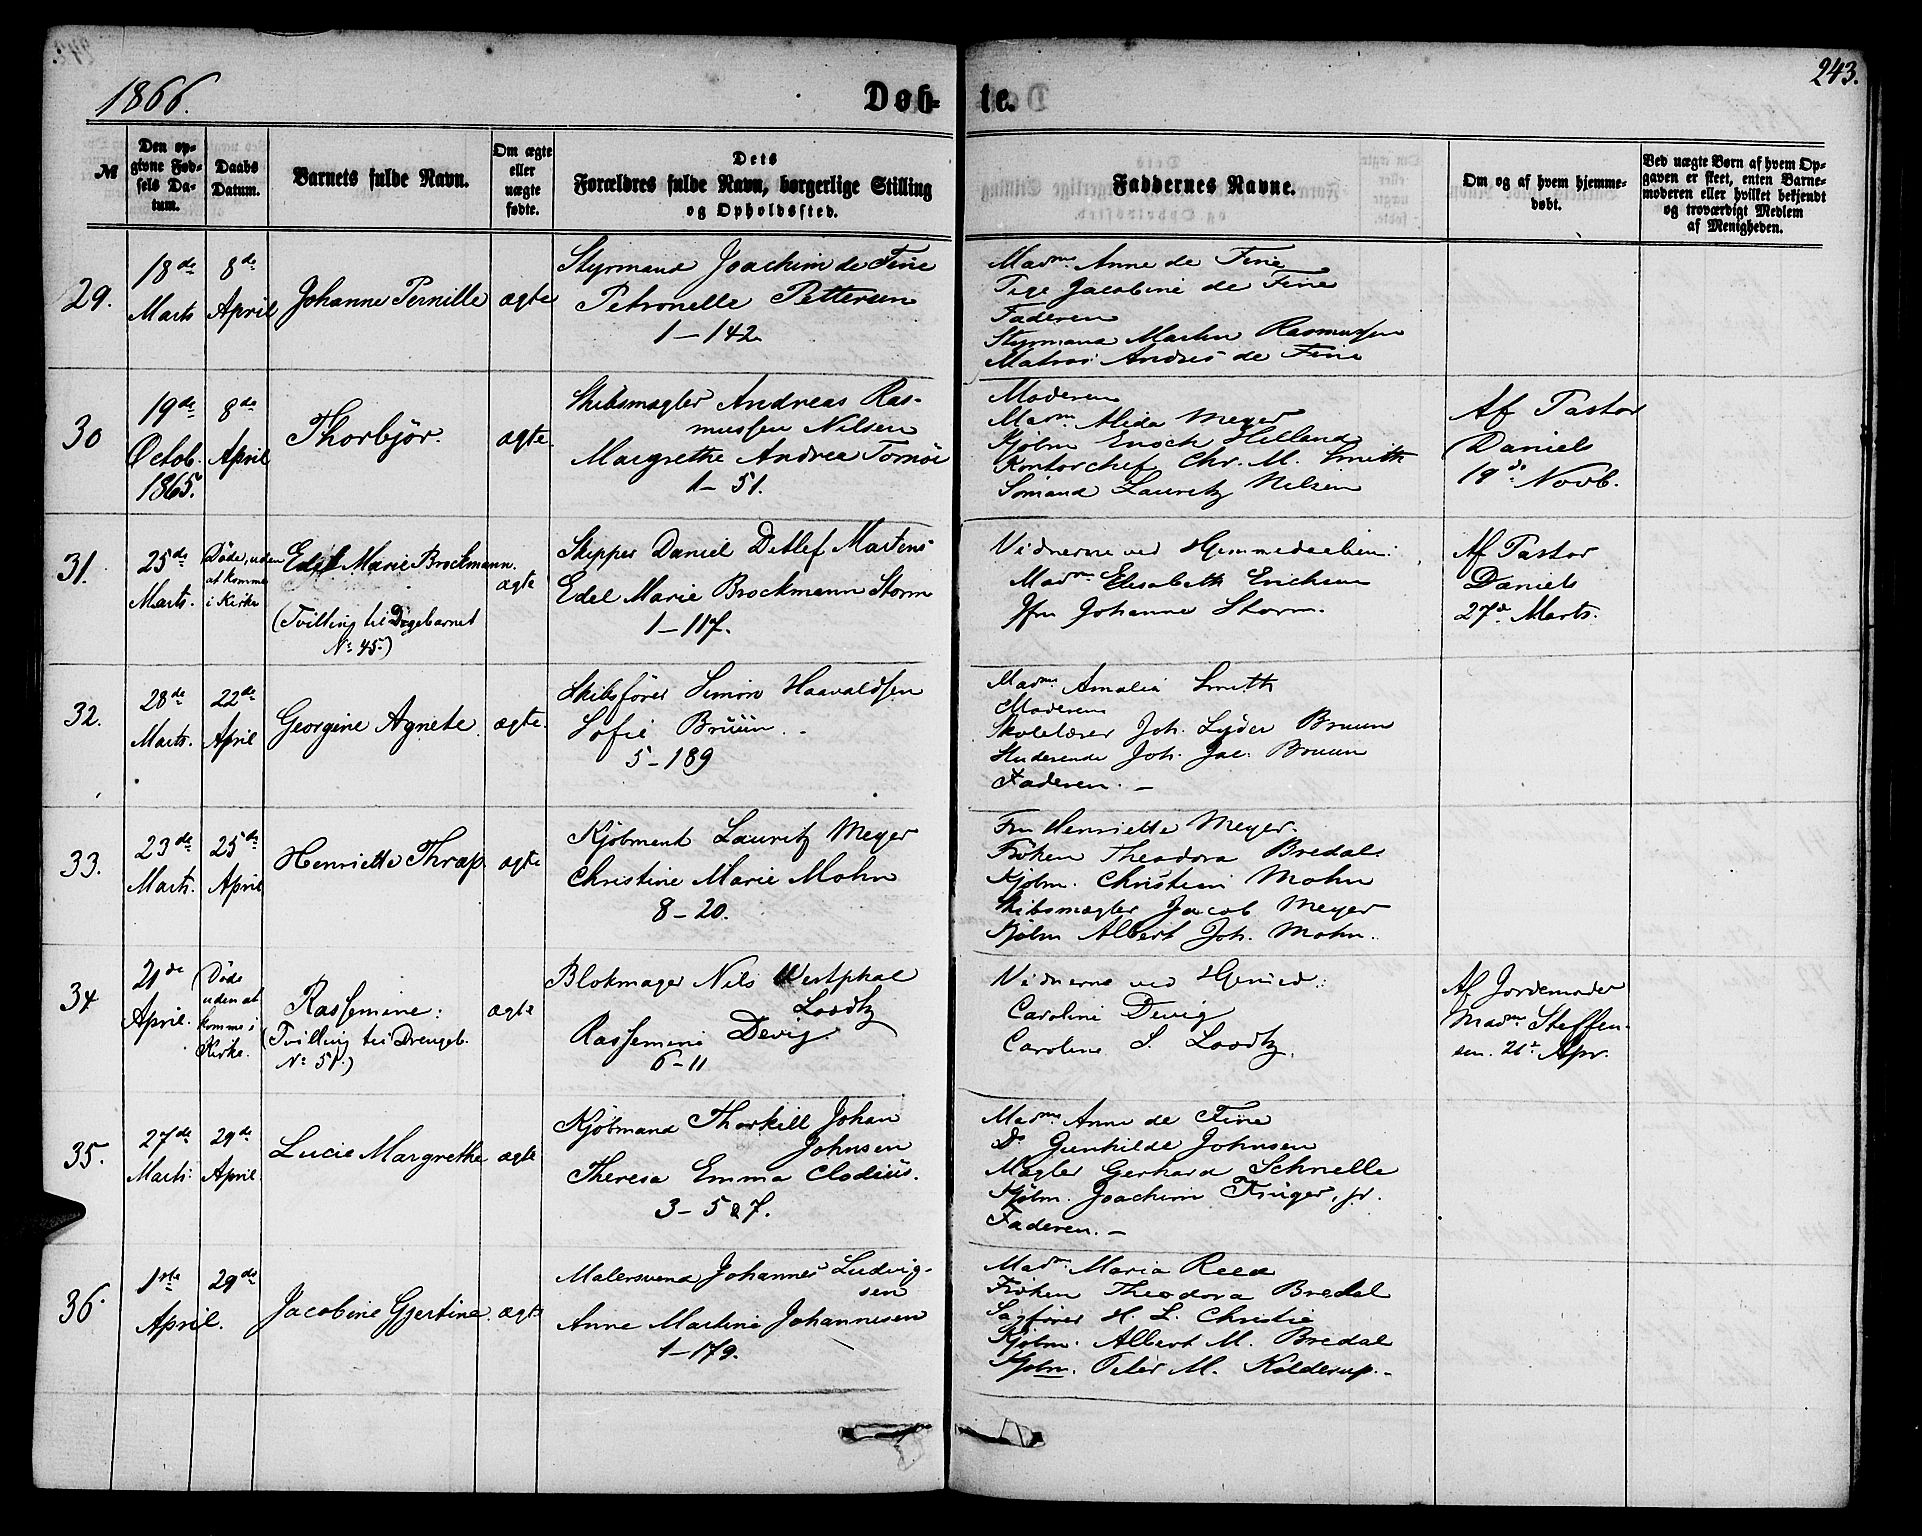 1866.
Døb-
te.
243.
№
Den op-
givne Fød-
sels Da-
tum.
Daabs
Datum.
Barnets fulde Navn.
Om ægte
eller
uægte
fødte.
Dets
Forældres fulde Navn, borgerlige Stilling
og Opholdssted.
Faddernes Navne.
Om og af hvem hjemme-
døbt.
Ved uægte Børn af hvem Op-
gaven er skeet, enten Barne-
moderen eller hvilket bekjendt
og troværdigt Medlem
af Menigheden.
29.
18de
Marts
8de
April
Johanne Pernille
ægte
Styrmand Joachim de Fine
Petronelle Pettersen
1 – 142
Madm. Anne de Fine
Pige Jacobine de Fine
Faderen
Styrmand Martin Rasmussen
Matros Andres de Fine
30
19de
Octob.
1865.
8de
April
Thorbjør.
ægte.
Skibsmægler Andreas Ras-
mussen Nilsen
Margrethe Andrea Tornøe
1 – 51.
Moderen
Madm. Alida Meyer
Kjøbm Enoch Helland
Kontorchef Chr. M. Smith
Sømand Lauritz Nilsen
Af Pastor
Daniel
19de Novb.
31.
25de
Marts.
Døde, uden
at komme
i Kirke
Edel Marie Brockmann.
(Tvilling til Pigebarnet
No 45.)
ægte
Skipper Daniel Detlef Martens
Edel Marie Brockmann Storm
1 – 117.
Vidnerne ved Hjemmedaaben:
Madm Elisabeth Erichsen
Jfr Johanne Storm.
Af Pastor
Daniel
27de Marts.
32.
28de
Marts.
22de
April
Georgine Agnete.
ægte.
Skibsfører Simon Haavaldsen
Sofie Brüün.
5 – 189
Madm. Amalia Smith
Moderen
Skolelærer Joh. Lyder Bruun
Studerende Joh. Jac. Bruun
Faderen. –
33.
23de
Marts.
25de
April
Henriette Thrap
ægte
Kjøbmand Lauritz Meyer
Christine Marie Mohn
8 – 20.
Fru Henriette Meyer.
Frøken Theodora Bredal.
Kjøbm. Christian Mohn
Skibsmægler Jacob Meyer
Kjøbm Albert Joh. Mohn.
34
21de
April.
Døde
uden at
komme i
Kirke.
Rassemine:
(Tvilling til Drengeb.
No 51.)
ægte
Blokmager Nils Westphal
Loodtz
Rassemine Devig.
6 – 11
Vidnerne ved Hjemmed.:
Caroline Devig
Caroline S. Loodtz.
Af Jordemoder
Madm Steffen-
sen. 26de Apr.
35.
27de
Marts.
29de
April.
Lucie Margrethe
ægte
Kjøbmand Thorkill Johan
Johnsen
Theresa Emma Clodiüs.
3 – 5 & 7.
Madm Anne de Fine
Do Gunhilde Johnsen
Mægler Gerhard Schnelle
Kjøbm. Joachim Krüger, jr.
Faderen. –
36.
1ste
April.
29de
Jacobine Gjertine.
ægte
Malersvend Johannes Ludvig-
sen
Anne Martine Johannesen
1 – 179.
Madm. Maria Reed
Frøken Theodora Bredal
Sagfører H. L. Christie
Kjøbm. Albert M. Bredal
Kjøbm. Peter M. Kolderup. –